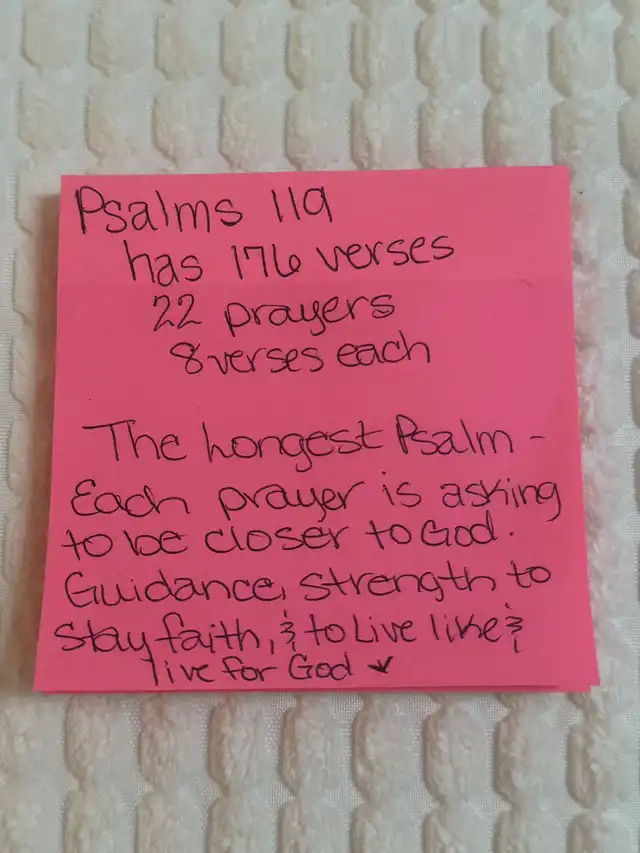 Psalms 119
has 176 verses
22 prayers
8 verses each
The longest Psalm -
Each prayer is asking
to be closer to God.
Guidance, strength to
stay faith, & to Live like &
live for God